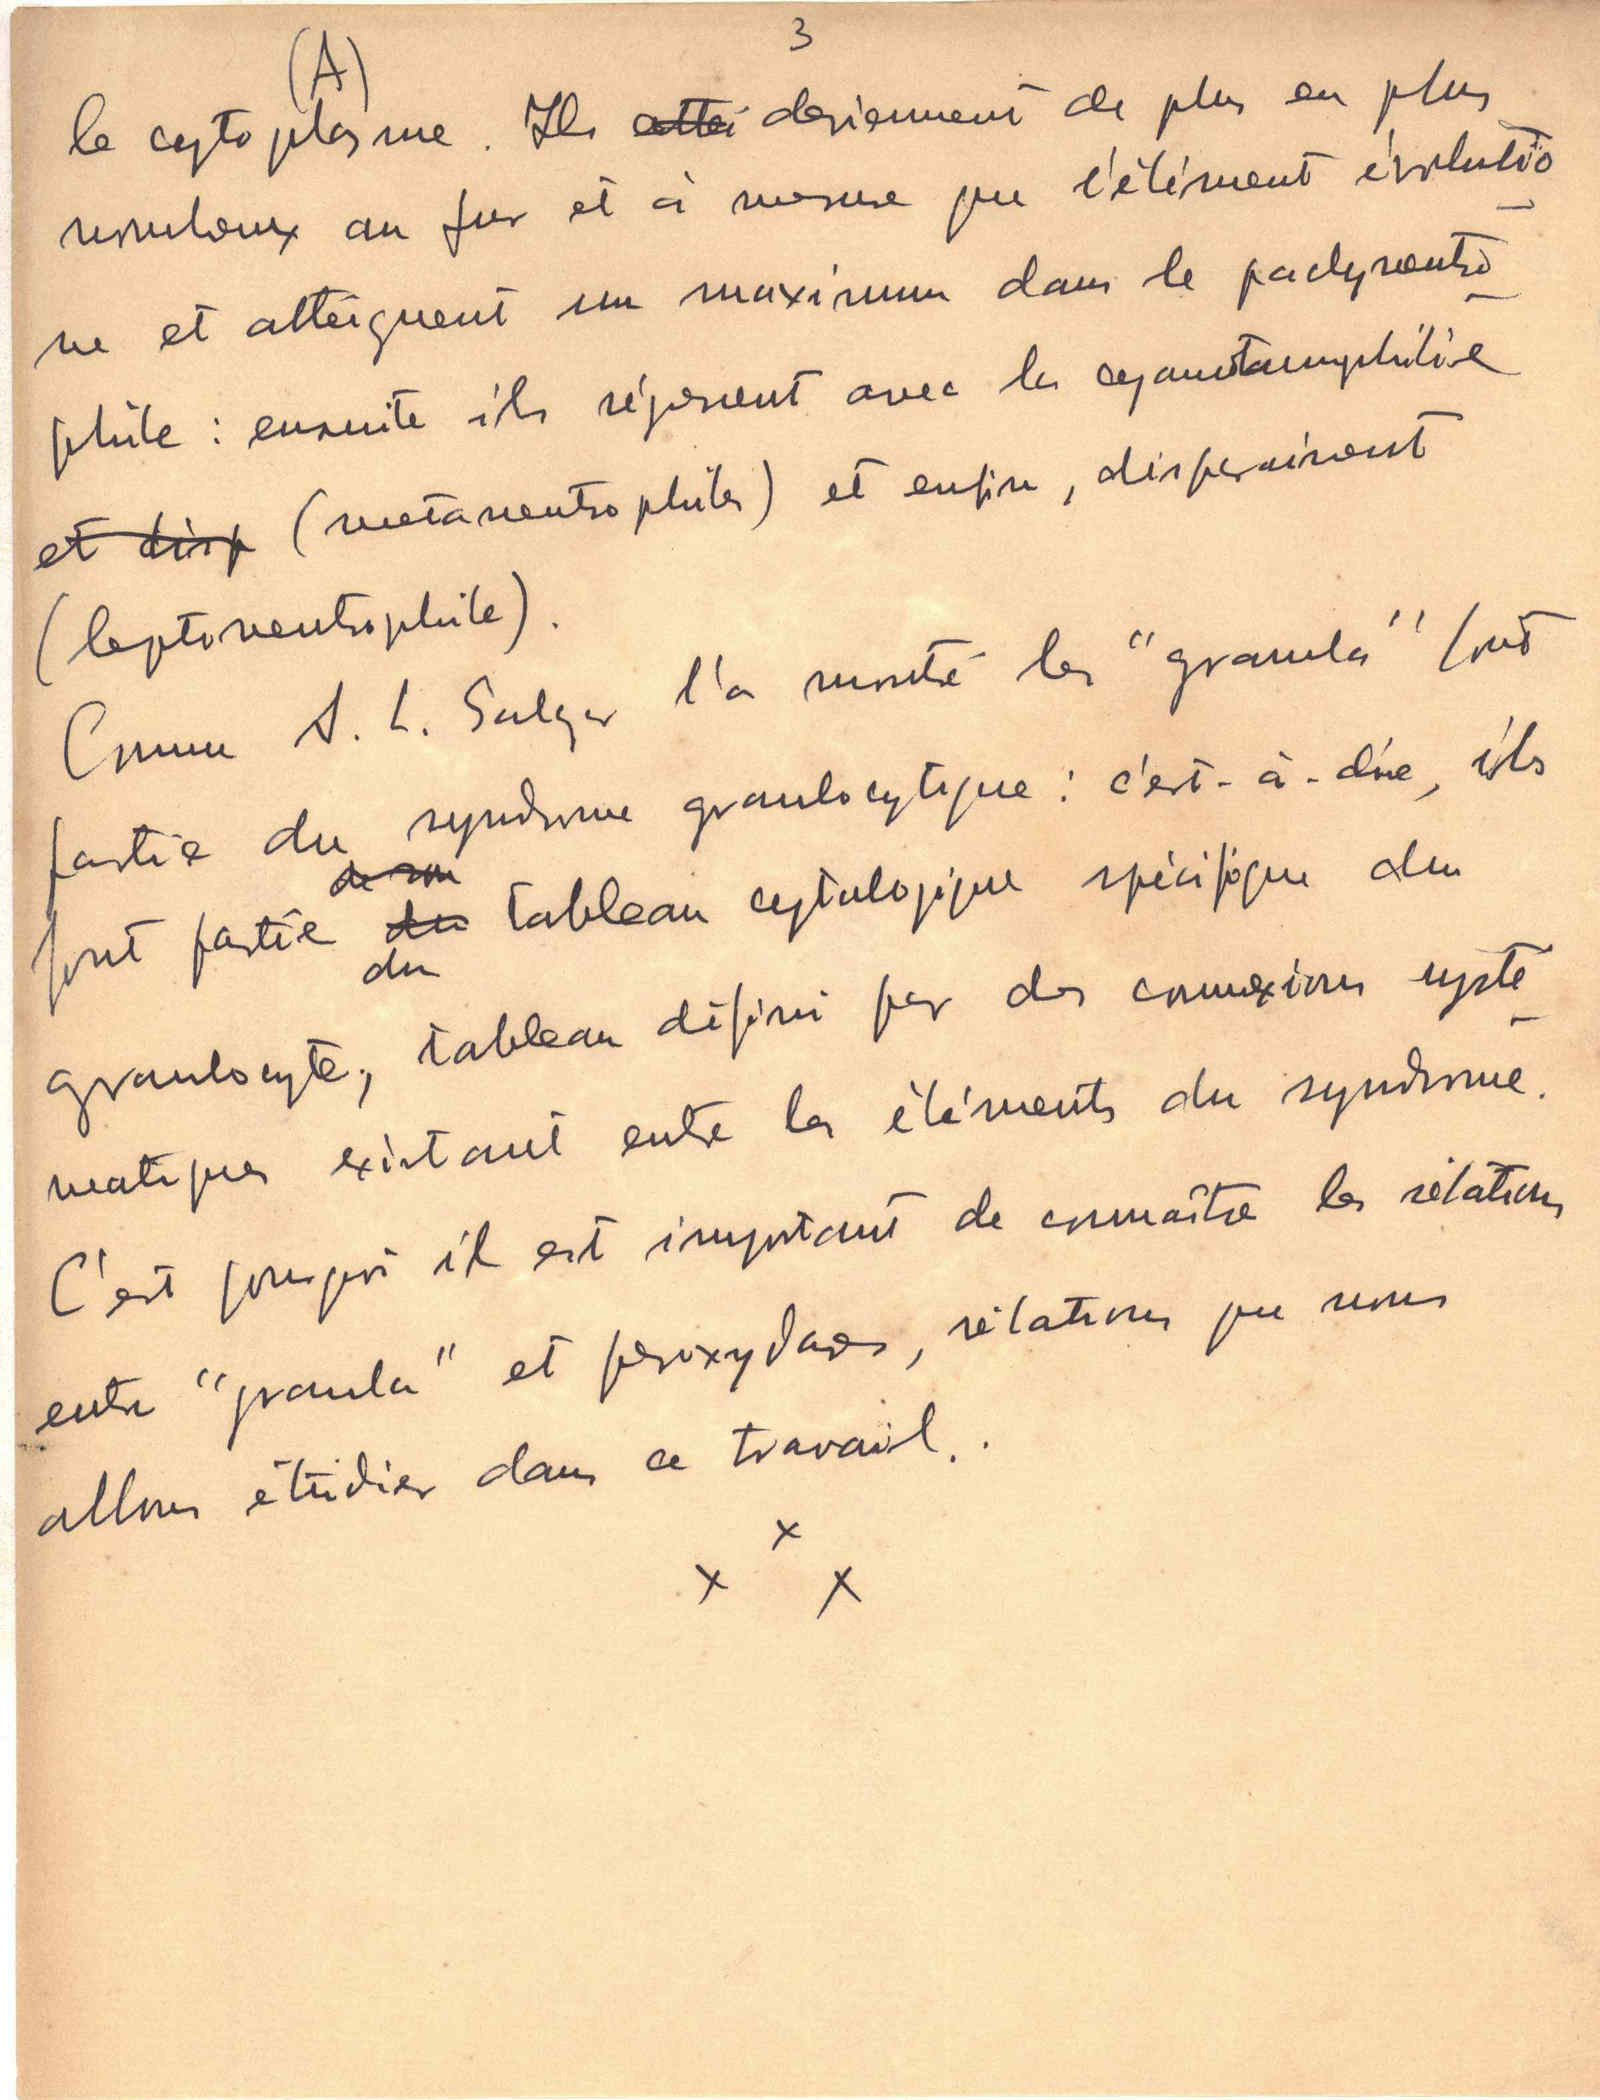 3
(A)
le cytoplasme. Ils attei deviennent de plus en plus
nombreux au fur et à mesure que l'élément évolutio
ne et atteignent un maximum dans le pachyneutro
phile : ensuite ils régressent avec la
et disp (metaneutrophiles) et enfin, disparaissent
(leptoneutrophile).
Comme A. L. Salgar l'a montré les "granula" font
partie du syndrome granulocytique : c'est-à-dire, ils
de son
font partie du tableau cytologique spécifique du
du
granulocyte, tableau défini par des connexions systé
matiques existant entre les éléments du syndrome.
C'est pourquoi il est important de connaître les rélations
entre "granula" et peroxydases, rélations que nous
allons étudier dans ce travail.
x
x x